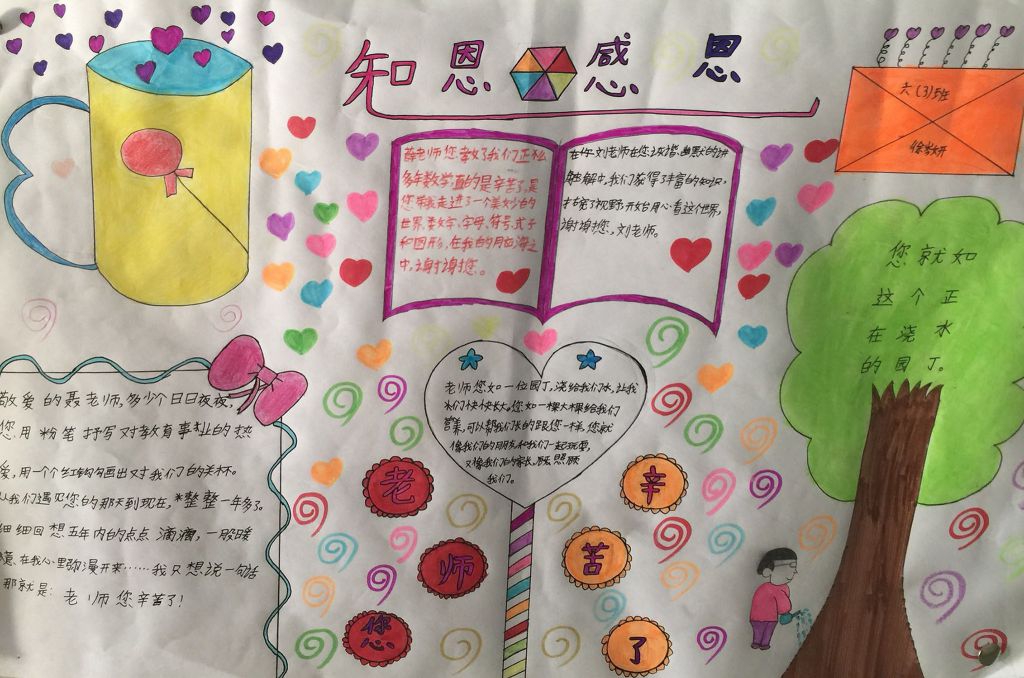 知恩感恩
六(3)班
薛老师您教了我们正么
多年数学,真的是辛苦了,是
您带我走进了一个美妙的
世界,数字、字母、符号、式子
和图形,在我的脑海之
中,谢谢您。
在你刘老师在您诙谐、幽默的讲
解中,我们获得了丰富的知识,
扩宽了视野,开始用心看这个世界,
谢谢您,刘老师。
您就如
这个正
在浇水
的园丁。
敬爱的聂老师,多少个日日夜夜,
您用粉笔抒写对教育事业的热
爱,用一个红钩勾画出对我们的关怀。
从我们遇见您的那天到现在,整整一年多了。
细细回想五年内的点点滴滴,一股暖
意在我心里弥漫开来……我只想说一句话
那就是:老师您辛苦了!
老师您如一位园丁,浇给我们水,让我
们快快长大。您如一棵大棵给我们
营养,可以帮我们张的跟您一样,您就
像我们的朋友和我们一起玩耍,
又像我们的家长,照顾
我们。
老师您
辛苦了